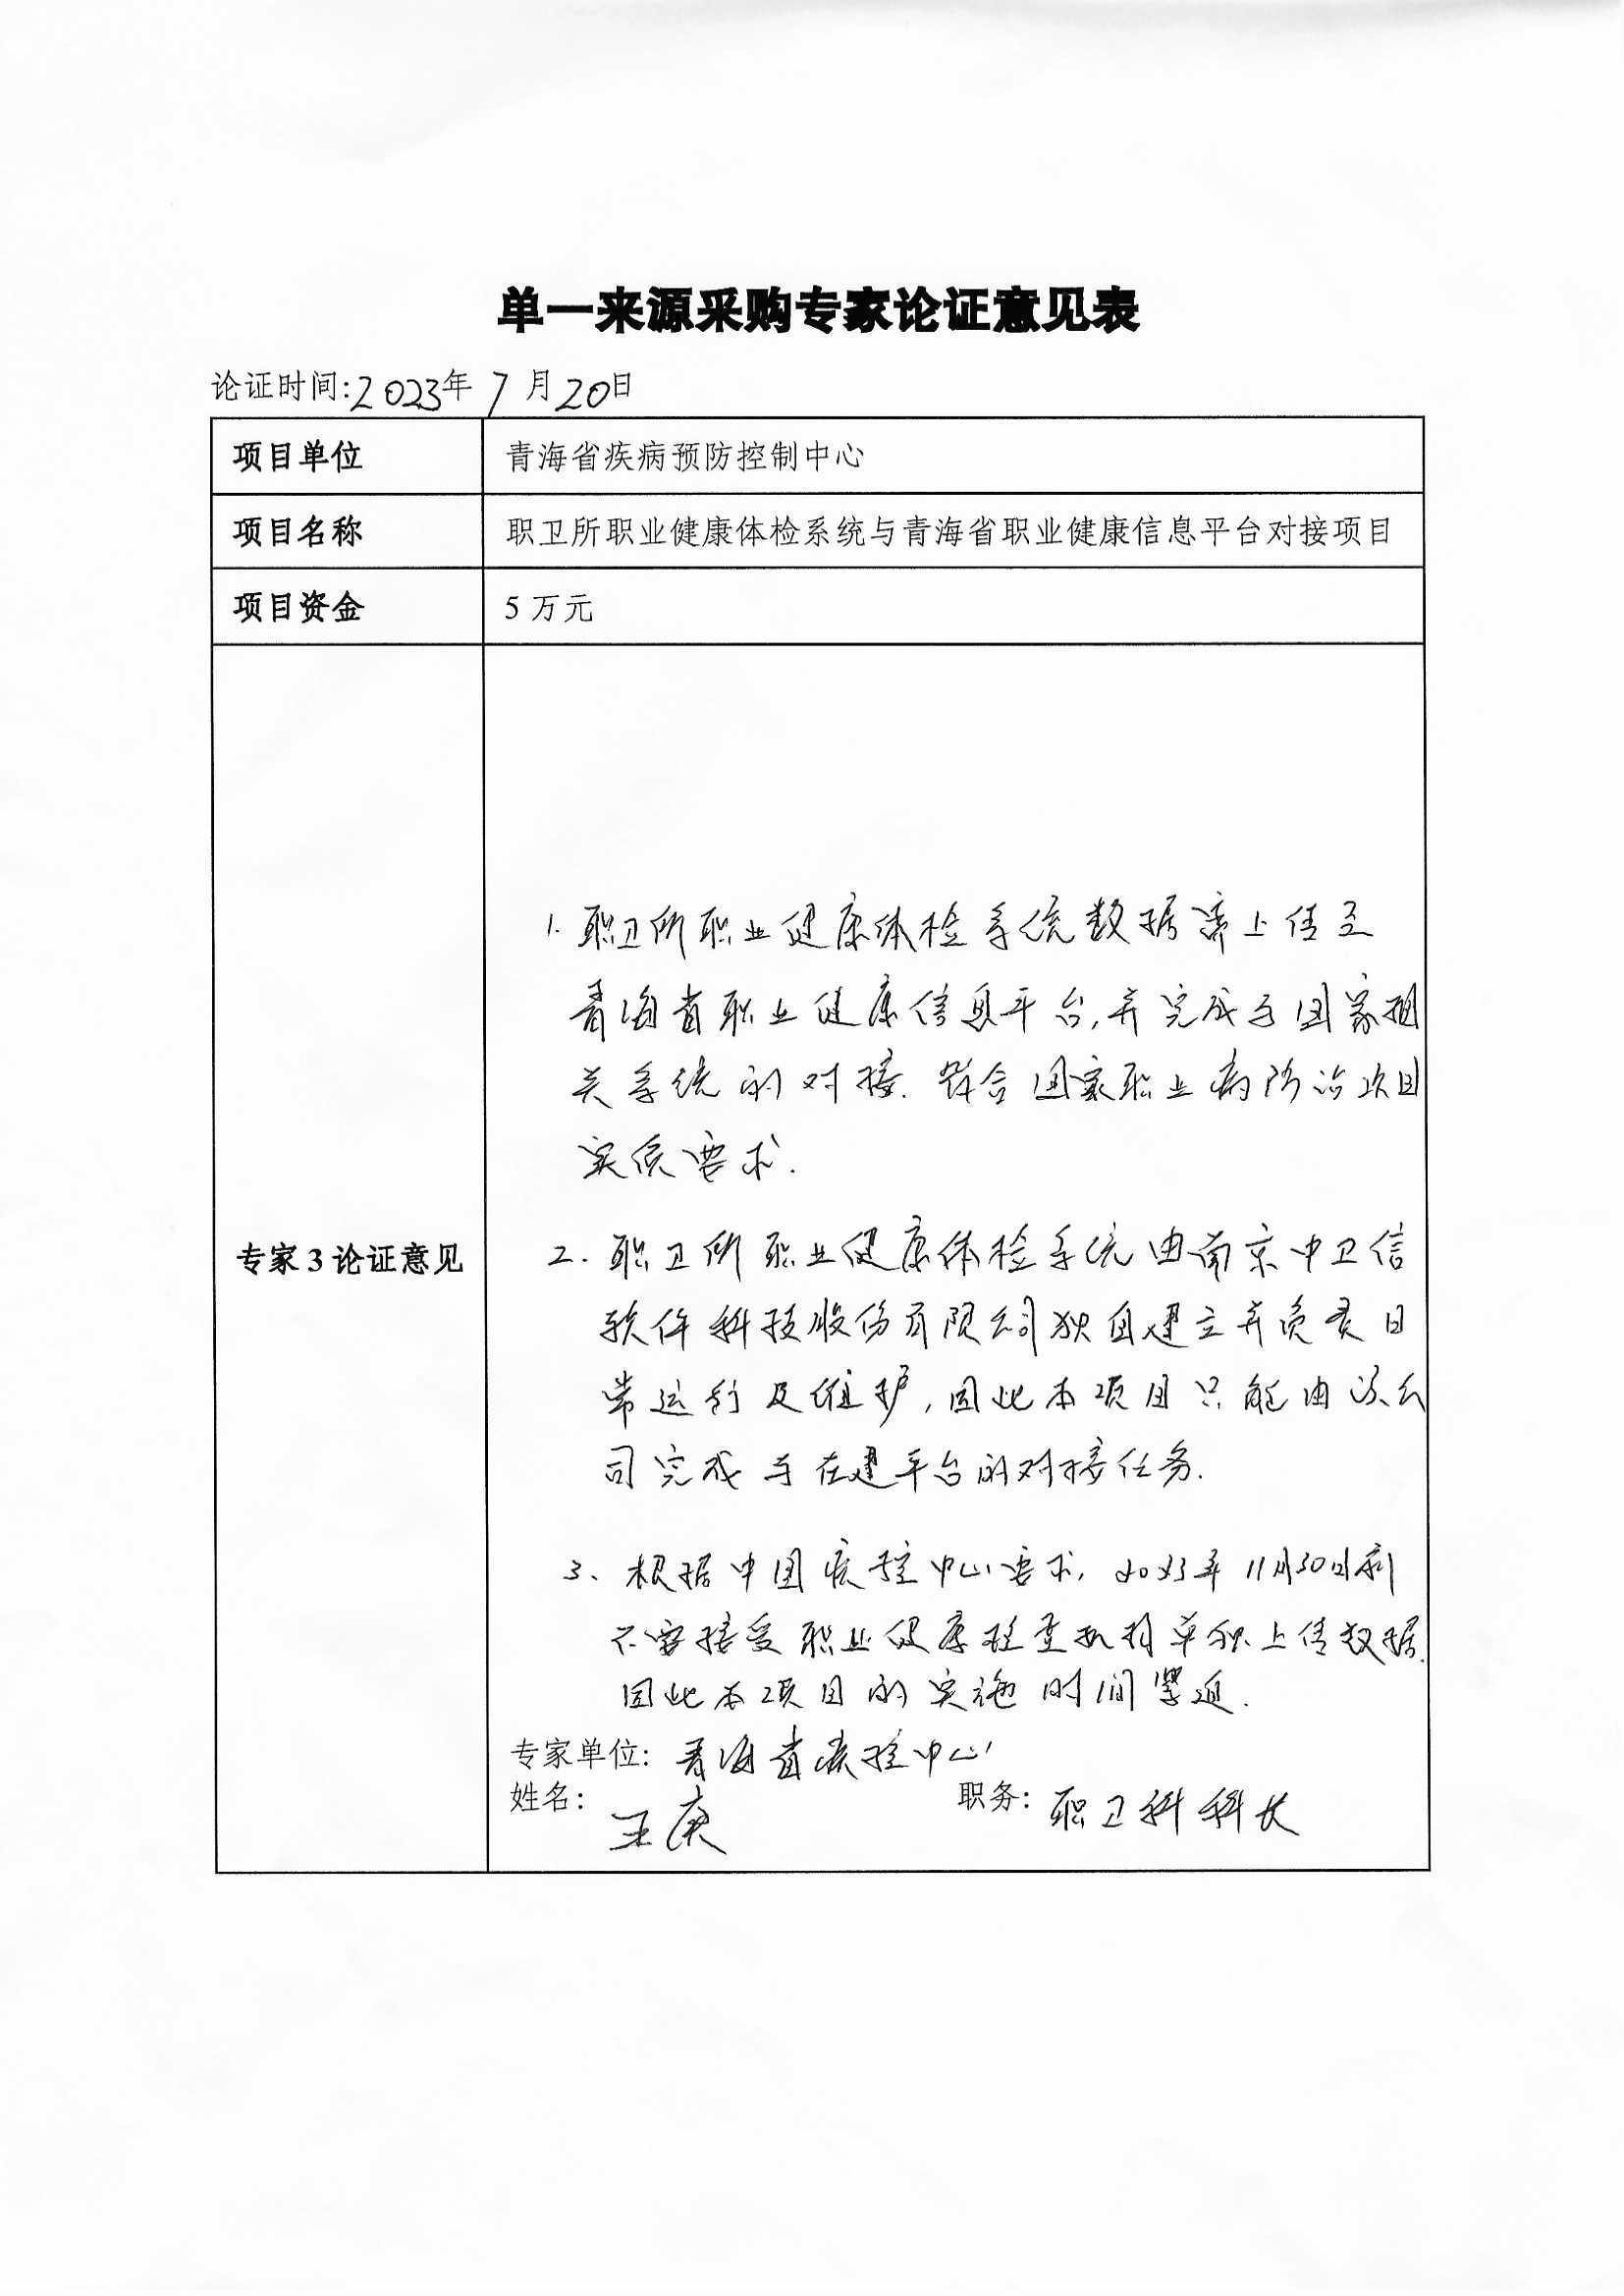 单一来源采购专家论证意见表
论证时间:2023年7月20日
项目单位
青海省疾病预防控制中心
项目名称
职卫所职业健康体检系统与青海省职业健康信息平台对接项目
项目资金
5 万元
专家 3 论证意见
1. 职卫所职业健康体检系统数据需上传至
青海省职业健康信息平台,并完成与国家相
关系统的对接. 符合国家职业病防治项目
实质要求.
2. 职卫所职业健康体检系统由南京中卫信
软件科技股份有限公司独自建立并负责日
常运行及维护,因此本项目只能由该公
司完成与在建平台的对接任务.
3、根据中国疾控中心要求, 2023年11月30日前
不需接受职业健康检查机构单独上传数据.
因此本项目的实施时间紧迫.
专家单位: 青海省疾控中心
姓名: 王庚 职务: 职卫科科长